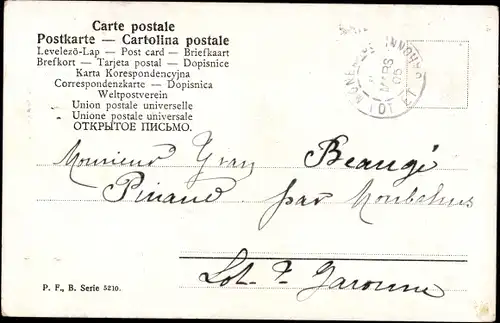 Carte postale
Postkarte — Cartolina postale
Levelező-Lap — Post card — Briefkaart
Brefkort — Tarjeta postal — Dopisnice
Karta Korespondencyjna
Correspondenzkarte — Dopisnica
Weltpostverein
Union postale universelle
Unione postale universale
ОТКРЫТОЕ ПИСЬМО.
MARS
05
LOT ET
Monsieur Beaugé
par
Lot. Garonne
P. F., B. Serie 5210.